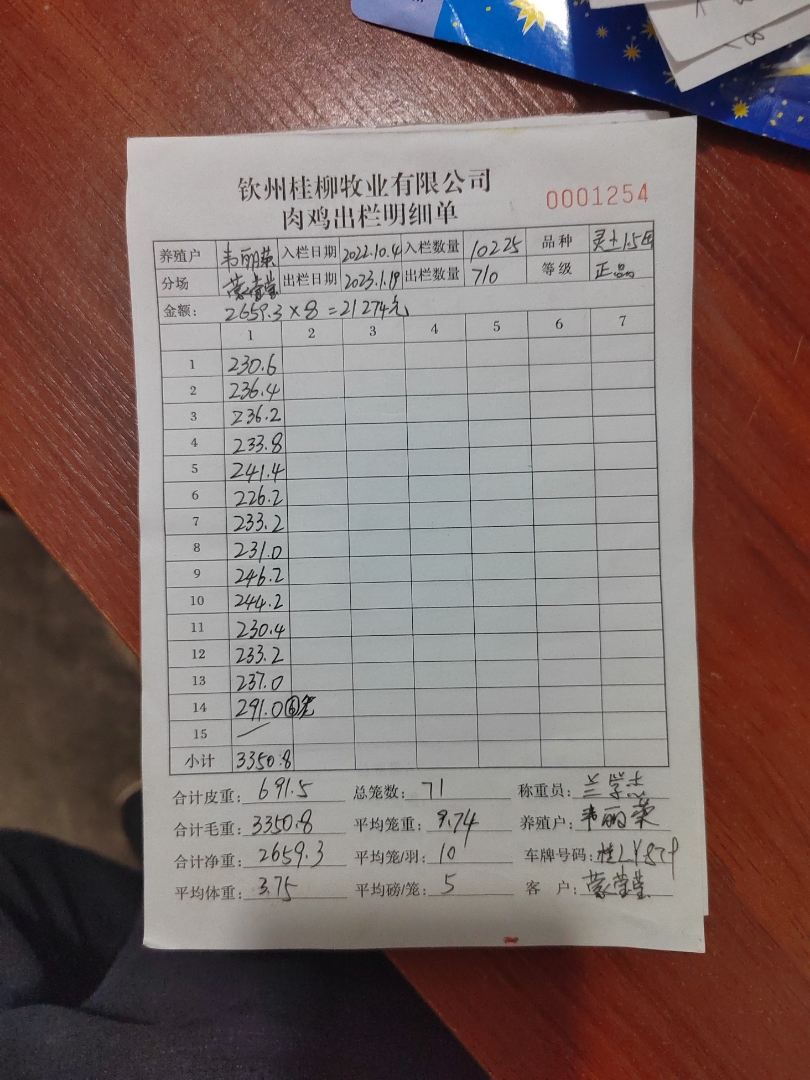 钦州桂柳牧业有限公司
肉鸡出栏明细单
0001254
养殖户 韦丽荣 入栏日期 2022.10.4 入栏数量 10225 品种 灵土1.5
分场 蒙莹莹 出栏日期 2023.1.19 出栏数量 710 等级 正品
金额: 2659.3×8=21274元
1 2 3 4 5 6 7
1 230.6
2 236.4
3 236.2
4 233.8
5 241.4
6 226.2
7 233.2
8 231.0
9 246.2
10 244.2
11 230.4
12 233.2
13 237.0
14 291.0 ⑥笼
15 /
小计 3350.8
合计皮重: 691.5 总笼数: 71 称重员: 兰学志
合计毛重: 3350.8 平均笼重: 9.74 养殖户: 韦丽荣
合计净重: 2659.3 平均笼/羽: 10 车牌号码: 桂LY
平均体重: 3.75 平均磅/笼: 5 客户: 蒙莹莹